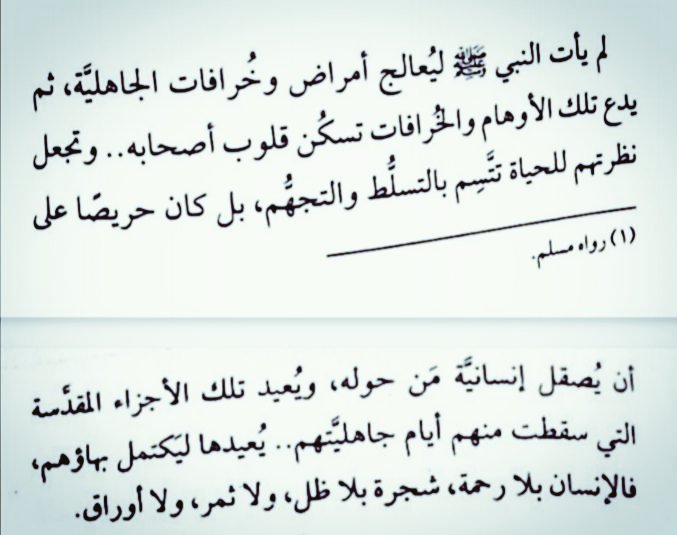 لم يأت النبي ﷺ ليُعالج أمراض وخُرافات الجاهليَّة، ثم
يدع تلك الأوهام والخُرافات تسكُن قلوب أصحابه.. وتجعل
نظرتهم للحياة تتَّسِم بالتسلُّط والتجهُّم، بل كان حريصًا على
(١) رواه مسلم.
أن يُصقل إنسانيَّة مَن حوله، ويُعيد تلك الأجزاء المقدَّسة
التي سقطت منهم أيام جاهليَّتهم.. يُعيدها ليَكتمل بهاؤهم،
فالإنسان بلا رحمة، شجرة بلا ظل، ولا ثمر، ولا أوراق.